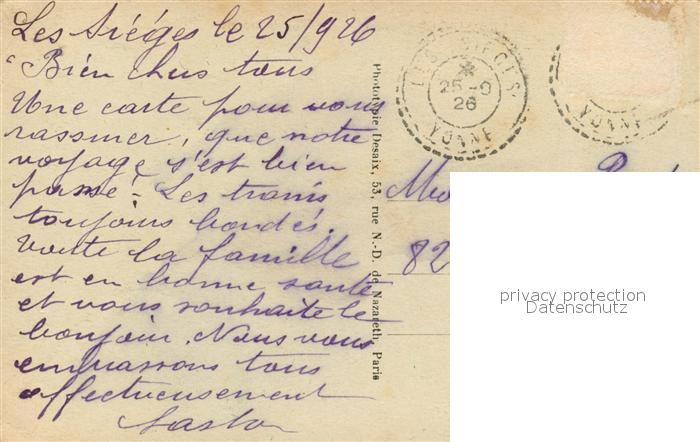 Les Siéges le 25/9 26
Bien chers tous
Une carte pour vous
rassurer, que notre
voyage s'est bien
passé - Les trains
toujours bondés.
Toute la famille
est en bonne santé
et vous souhaite le
bonjour. Nous vous
embrassons tous
affectueusement
Gaston
Phototypie Desaix, 53, rue N.-D. de Nazareth, Paris
LES SIEGES
25-9
26
YONNE
YONNE
82
privacy protection
Datenschutz